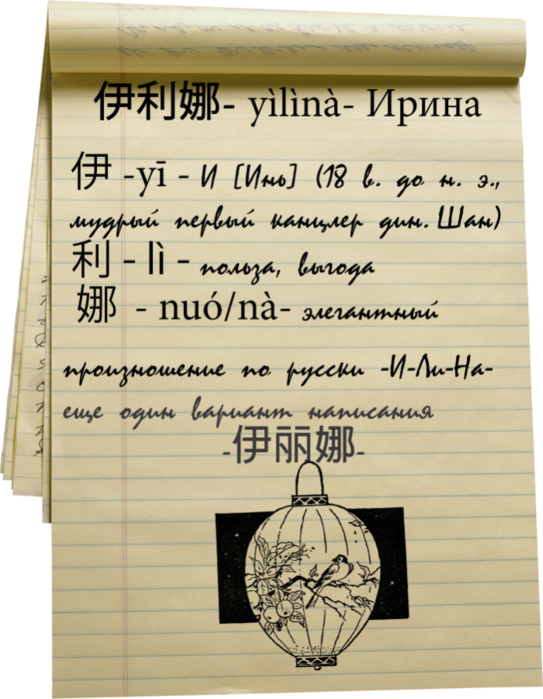 伊利娜- yìlìnà- Ирина
伊 -yī - И [Инь] (18 в. до н. э.,
мудрый первый канцлер дин. Шан)
利 - lì - польза, выгода
娜 - nuó/nà- элегантный
произношение по русски -И-Ли-На-
еще один вариант написания
-伊丽娜-